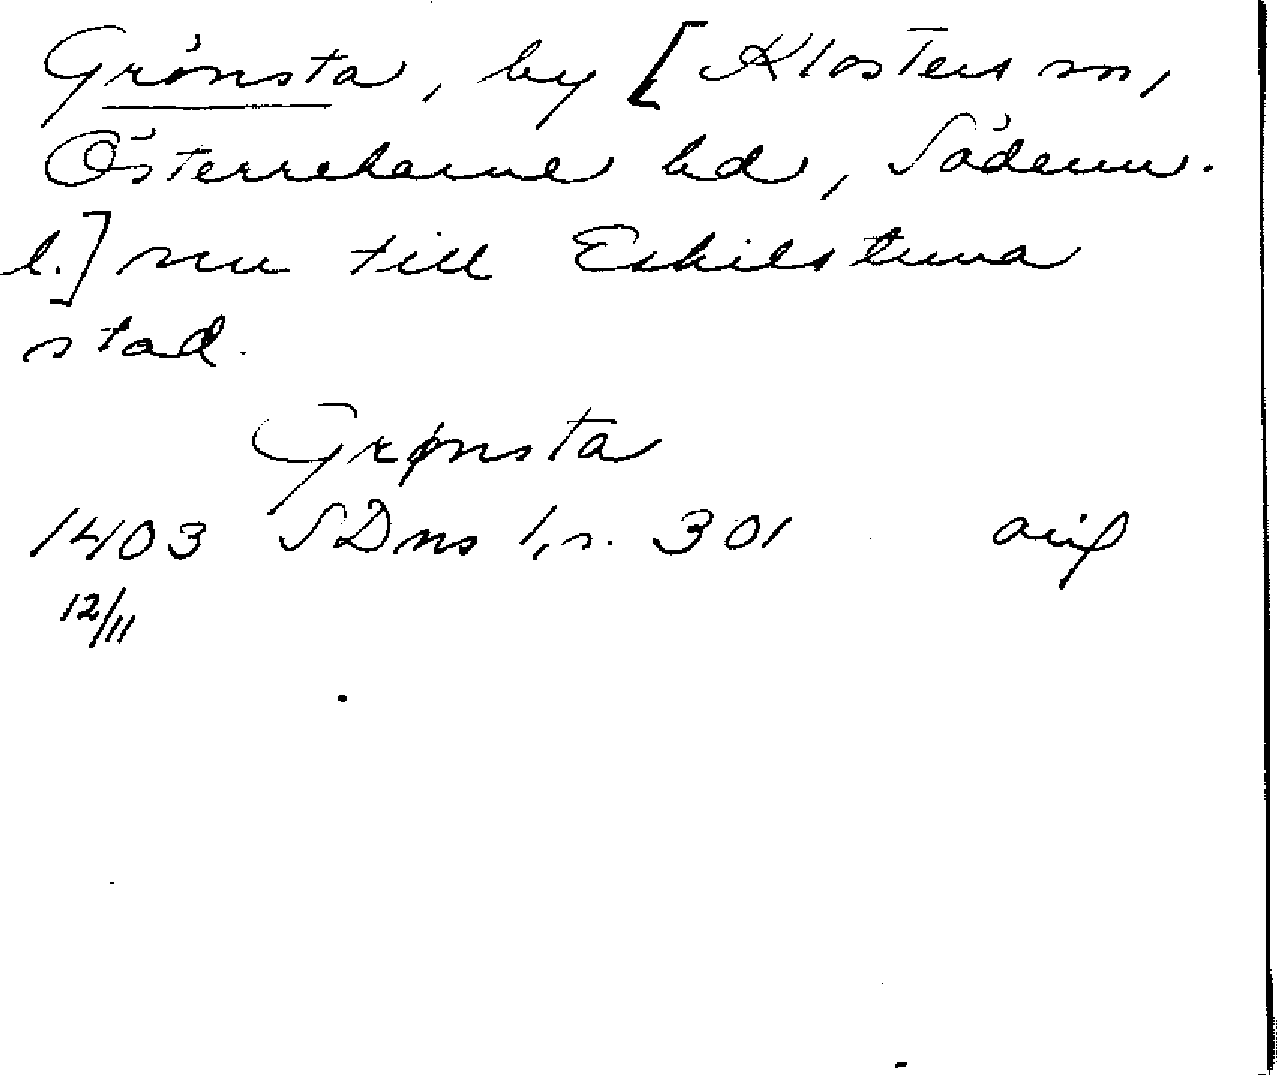 Grönsta, by [Klosters sn,
Österrekarne hd, Söderm.
l.] nu till Eskilstuna
stad.
Grønsta
1403 SDns 1, s. 301 avsk
12/11